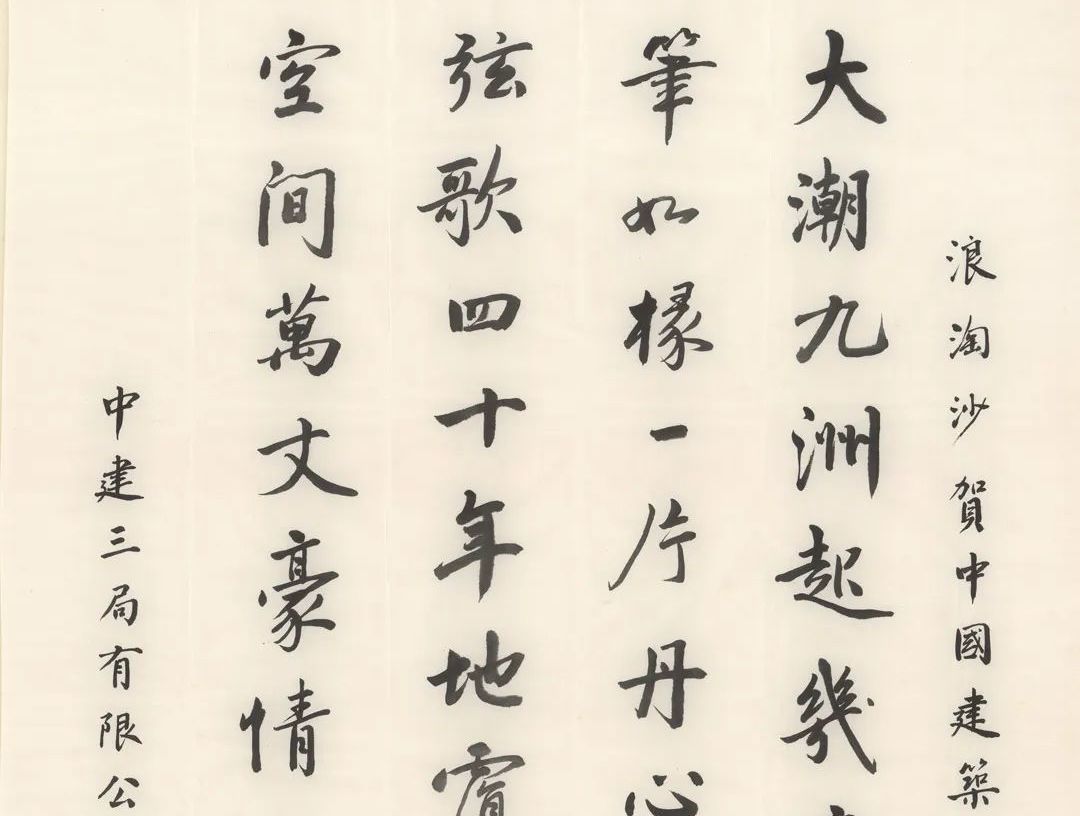 浪淘沙賀中國建築
大潮九洲起幾
筆如椽一片丹心
弦歌四十年地
空间萬丈豪情
中建三局有限公